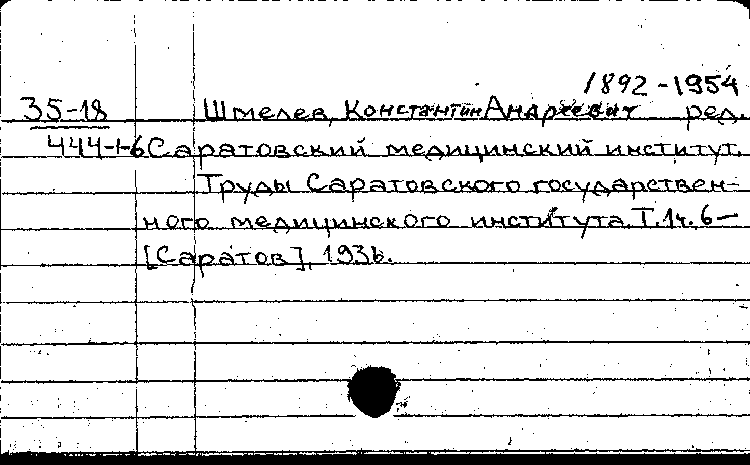 1892-1954
35-18 Шмелев, Константин Андреевич ред.
444-1-6 Саратовский медицинский институт.
Труды Саратовского государствен-
ного медицинского института. Т.1ч.6-
[Саратов], 1936.